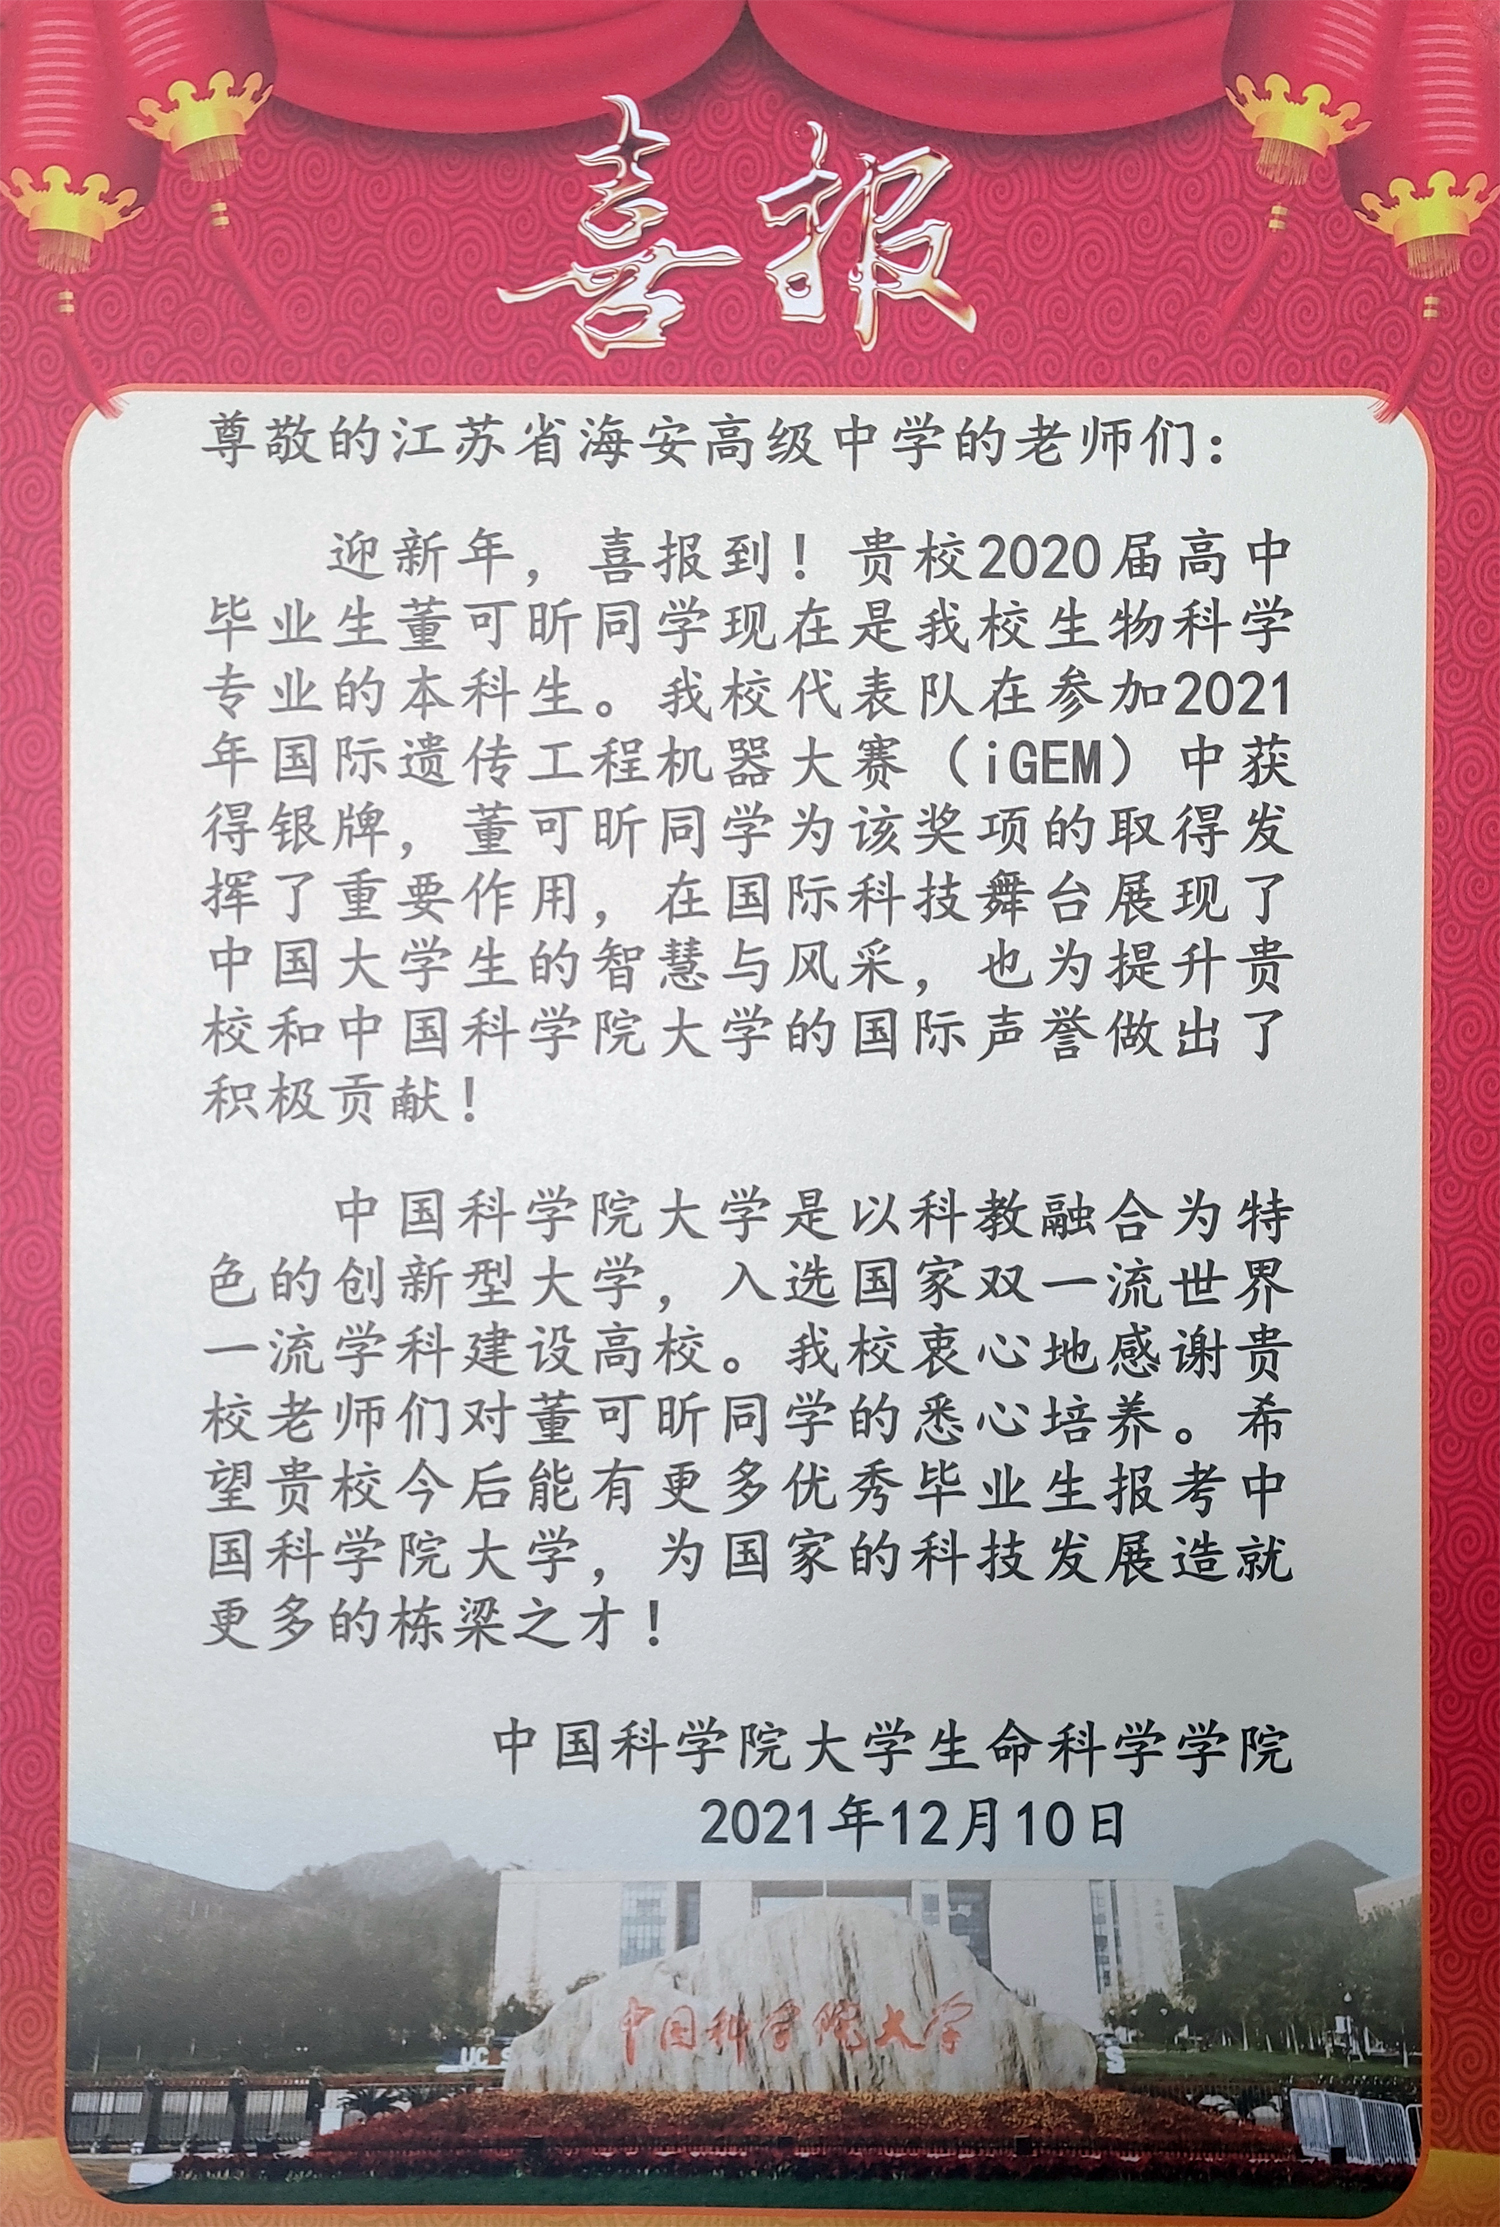 喜报
尊敬的江苏省海安高级中学的老师们：
迎新年，喜报到！贵校2020届高中
毕业生董可昕同学现在是我校生物科学
专业的本科生。我校代表队在参加2021
年国际遗传工程机器大赛（iGEM）中获
得银牌，董可昕同学为该奖项的取得发
挥了重要作用，在国际科技舞台展现了
中国大学生的智慧与风采，也为提升贵
校和中国科学院大学的国际声誉做出了
积极贡献！
中国科学院大学是以科教融合为特
色的创新型大学，入选国家双一流世界
一流学科建设高校。我校衷心地感谢贵
校老师们对董可昕同学的悉心培养。希
望贵校今后能有更多优秀毕业生报考中
国科学院大学，为国家的科技发展造就
更多的栋梁之才！
中国科学院大学生命科学学院
2021年12月10日
中国科学院大学
UC S